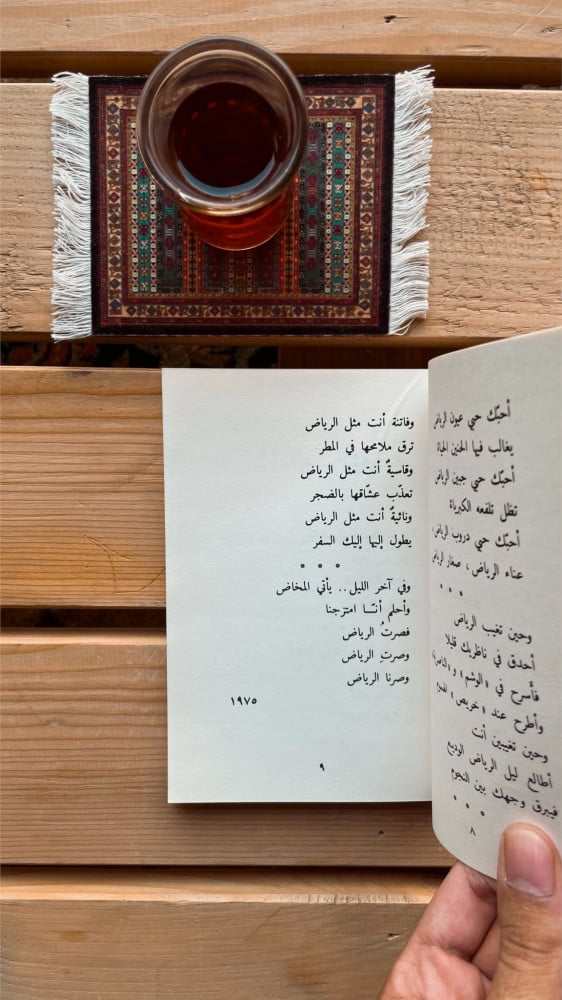 أحبّك حبي عيون الرياض
يغالب فيها الحنين الحياة
أحبّك حبي جبين الرياض
تظل تلفعه الكبرياء
أحبّك حبي دروب الرياض
عناء الرياض، صغار الرياض
• • •
وحين تغيب الرياض
أحدق في ناظريك قليلا
فأسرح في «الوشم» و«الناصرية»
وأطرح عند «خريص»
وحين تغيبين أنت
أطالع ليل الرياض الوديع
فيبرق وجهك بين النجوم
• • •
٨
وفاتنة أنت مثل الرياض
ترق ملامحها في المطر
وقاسيةٌ أنت مثل الرياض
تعذّب عشّاقها بالضجر
ونائيةٌ أنت مثل الرياض
يطول إليها إليك السفر
• • •
وفي آخر الليل.. يأتي المخاض
وأحلم أننا امتزجنا
فصرتُ الرياض
وصرتِ الرياض
وصرنا الرياض
١٩٧٥
٩